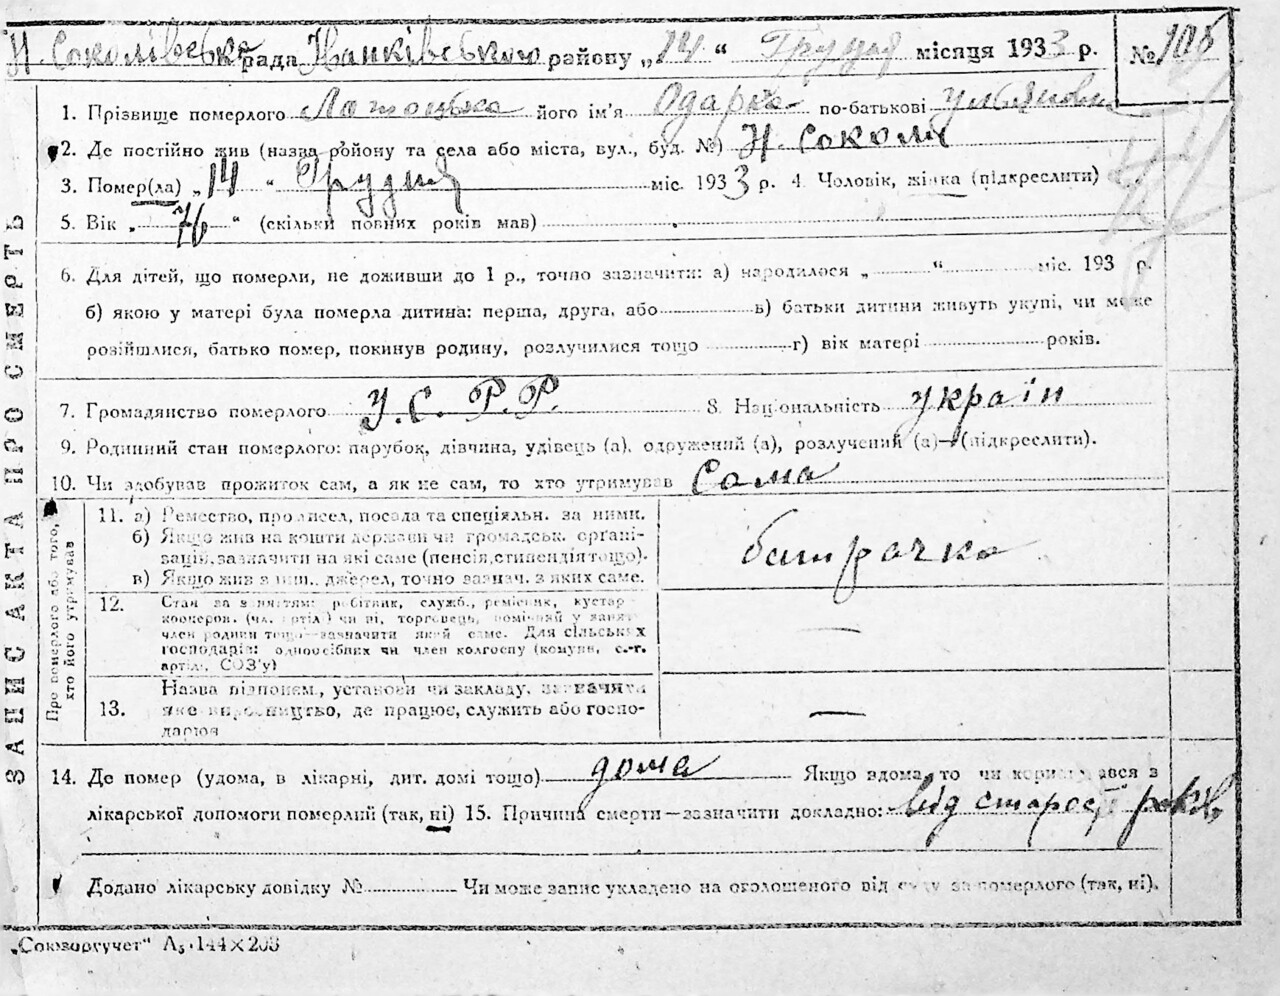 Н. Соколівська рада Іванківського району „14" Грудня місяця 1933 р. № 105
1. Прізвище померлого його ім'я Одарка по-батькові
2. Де постійно жив (назва району та села або міста, вул., буд. №) Н. Соколи
3. Помер(ла) „14" Грудня міс. 1933 р. 4. Чоловік, жінка (підкреслити)
5. Вік „76" (скільки повних років мав)
6. Для дітей, що померли, не доживши до 1 р., точно зазначити: а) народилося „ " міс. 193 р.
б) якою у матері була померла дитина: перша, друга, або в) батьки дитини живуть укупі, чи може
розійшлися, батько помер, покинув родину, розлучилися тощо г) вік матері років.
7. Громадянство померлого У.С.Р.Р. 8. Національність україн
9. Родинний стан померлого: парубок, дівчина, удівець (а), одружений (а), розлучений (а)—(підкреслити).
10. Чи здобував прожиток сам, а як не сам, то хто утримував Сама
ЗАПИС АКТА ПРО СМЕРТЬ
Про померлого або того,
хто його утримував
11. а) Ремество, промисел, посада та спеціяльн. за ними.
б) Якщо жив на кошти держави чи громадськ. органі-
зацій, зазначити на які саме (пенсія, стипендія тощо).
в) Якщо жив з інш. джерел, точно зазнач. з яких саме.
батрачка
12. Стан за заняттям: робітник, служб., ремісник, кустар
кооперов. (чл. артілі) чи ні, торговець, помічний у занят.
член родини тощо—зазначити який саме. Для сільських
господарів: одноосібник чи член колгоспу (комуни, с.-г.
артілі, СОЗ'у)
—
13. Назва підприєм., установи чи закладу, зазначити
яке виробництво, де працює, служить або госпо-
дарює
—
14. Де помер (удома, в лікарні, дит. домі тощо) дома Якщо вдома, то чи користувався з
лікарської допомоги померлий (так, ні) 15. Причина смерти—зазначити докладно: від старості років
Додано лікарську довідку № Чи може запис укладено на оголошеного від суду за померлого (так, ні).
„Союзоргучет" А₅ · 144×203